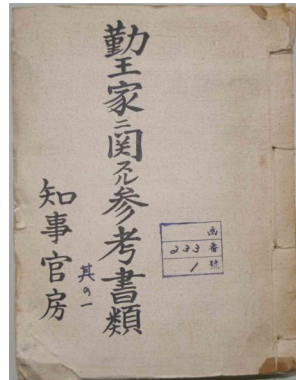 勤王家ニ関スル参考書類
其の一
知事官房
函番號
233
1